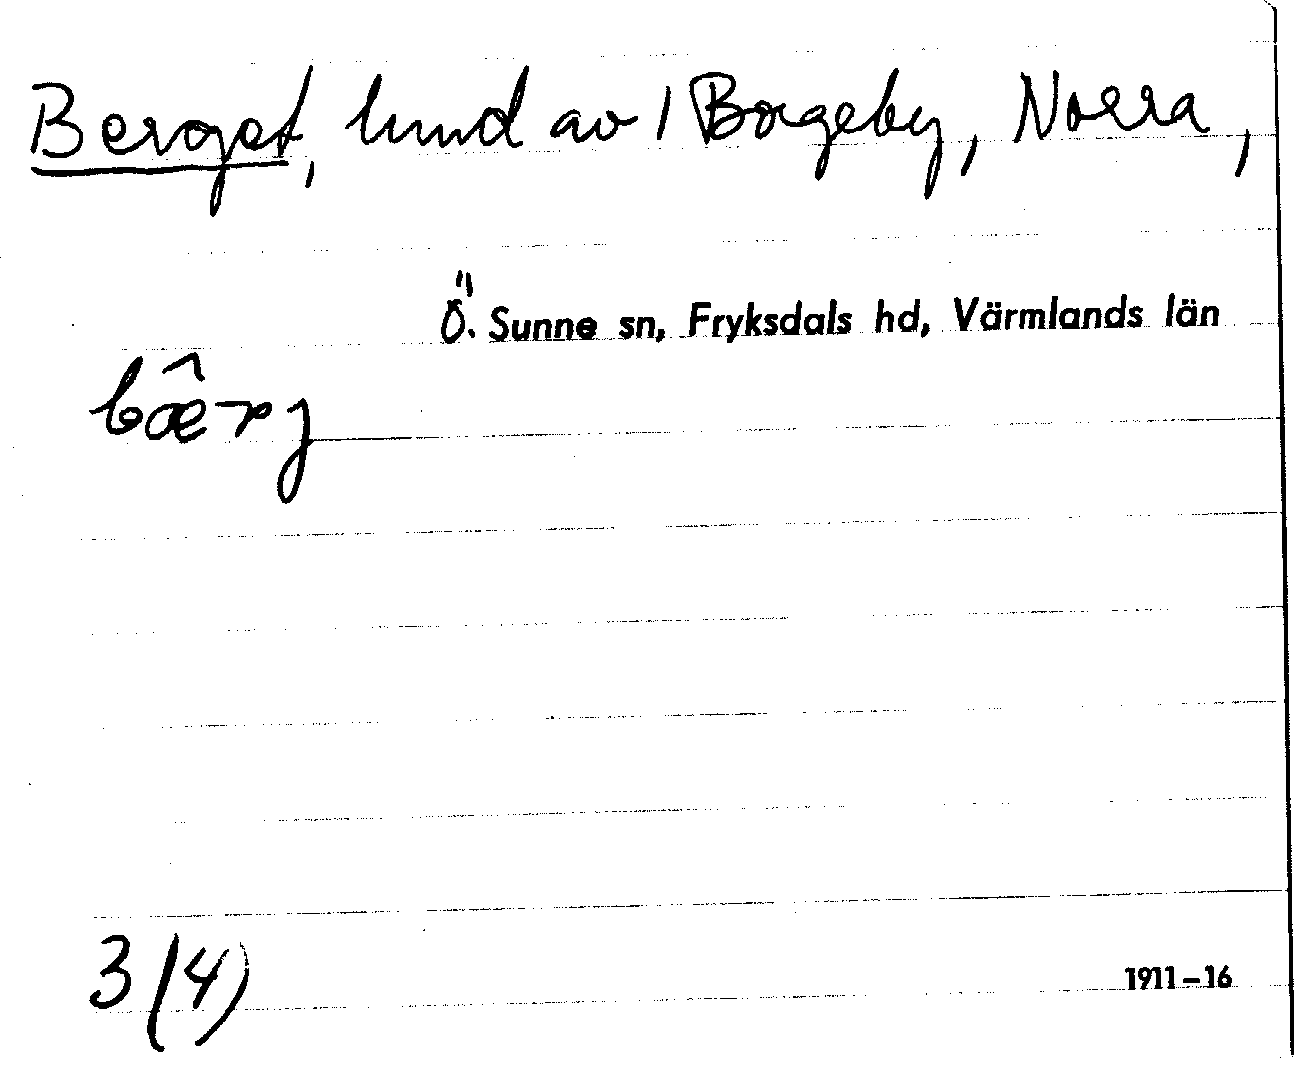 Berget, lund av 1 Borgeby, Norra,
Ö. Sunne sn, Fryksdals hd, Värmlands län
bæ̂rj
3 (4)
1911-16